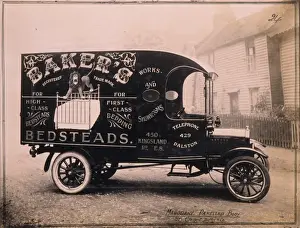 BAKER'S
REGISTERED TRADE MARK
FOR
HIGH-
CLASS
BEDDING
FOR
FIRST-
CLASS
BEDDING
BEDSTEADS.
WORKS-
AND
SHOWROOMS
430
KINGSLAND
RD. E.8.
TELEPHONE
429
DALSTON